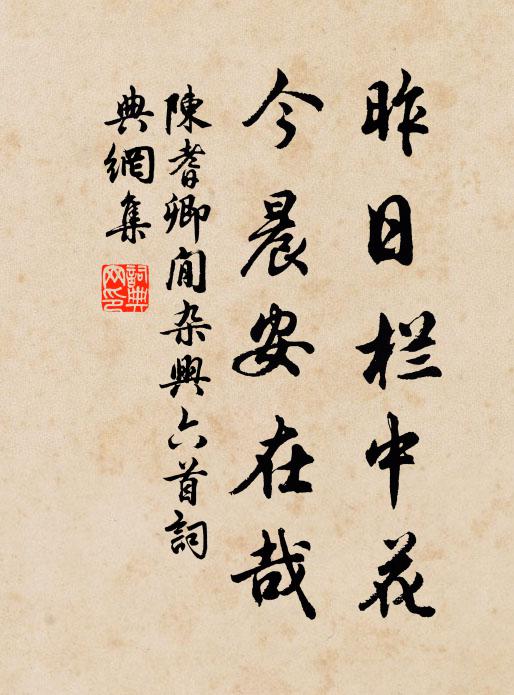 昨日栏中花
今晨安在哉
陳耆卿閒杂興六首詞
典網集
詞典网印